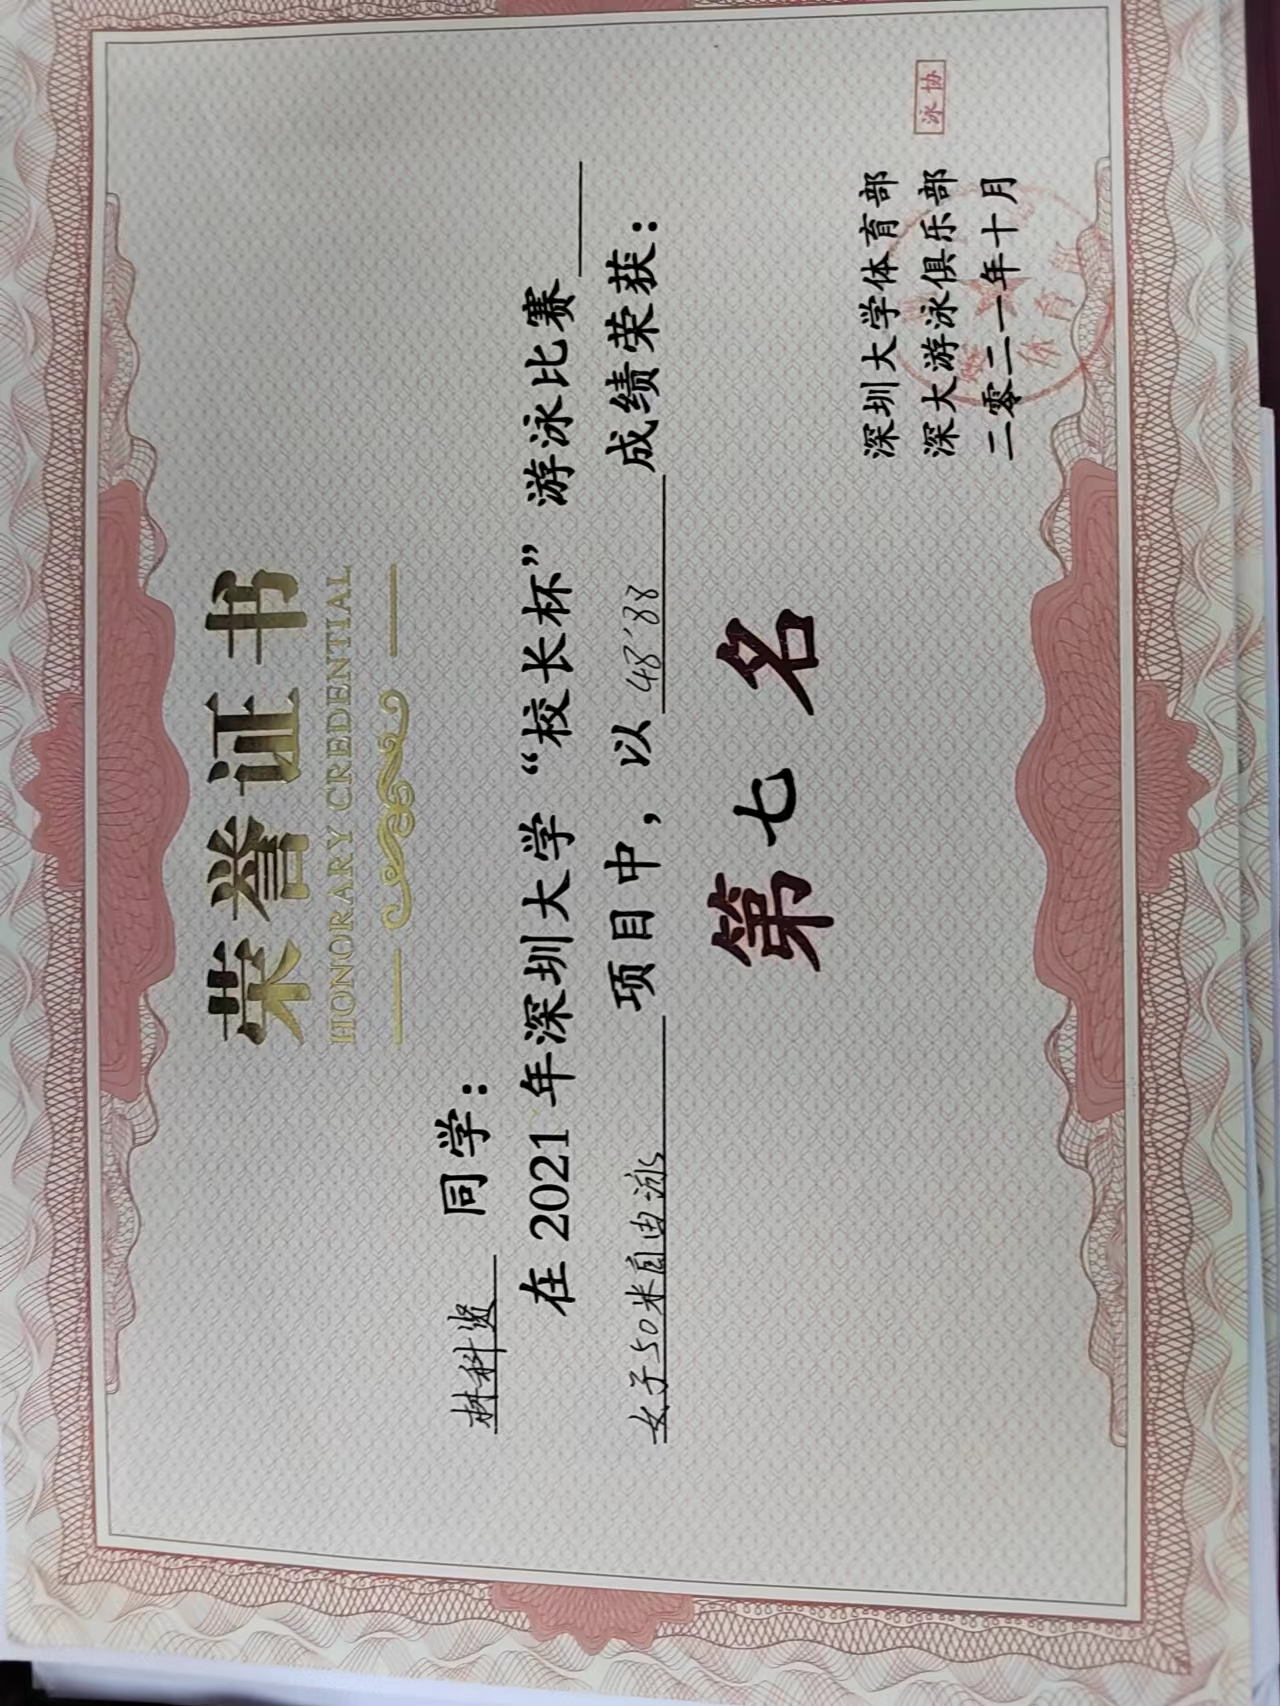 荣誉证书
HONORARY CREDENTIAL
林科贤 同学：
在 2021 年深圳大学“校长杯”游泳比赛
女子50米自由泳 项目中，以 48'88 成绩荣获：
第七名
深圳大学体育部
深大游泳俱乐部
泳协
二零二一年十月
体育